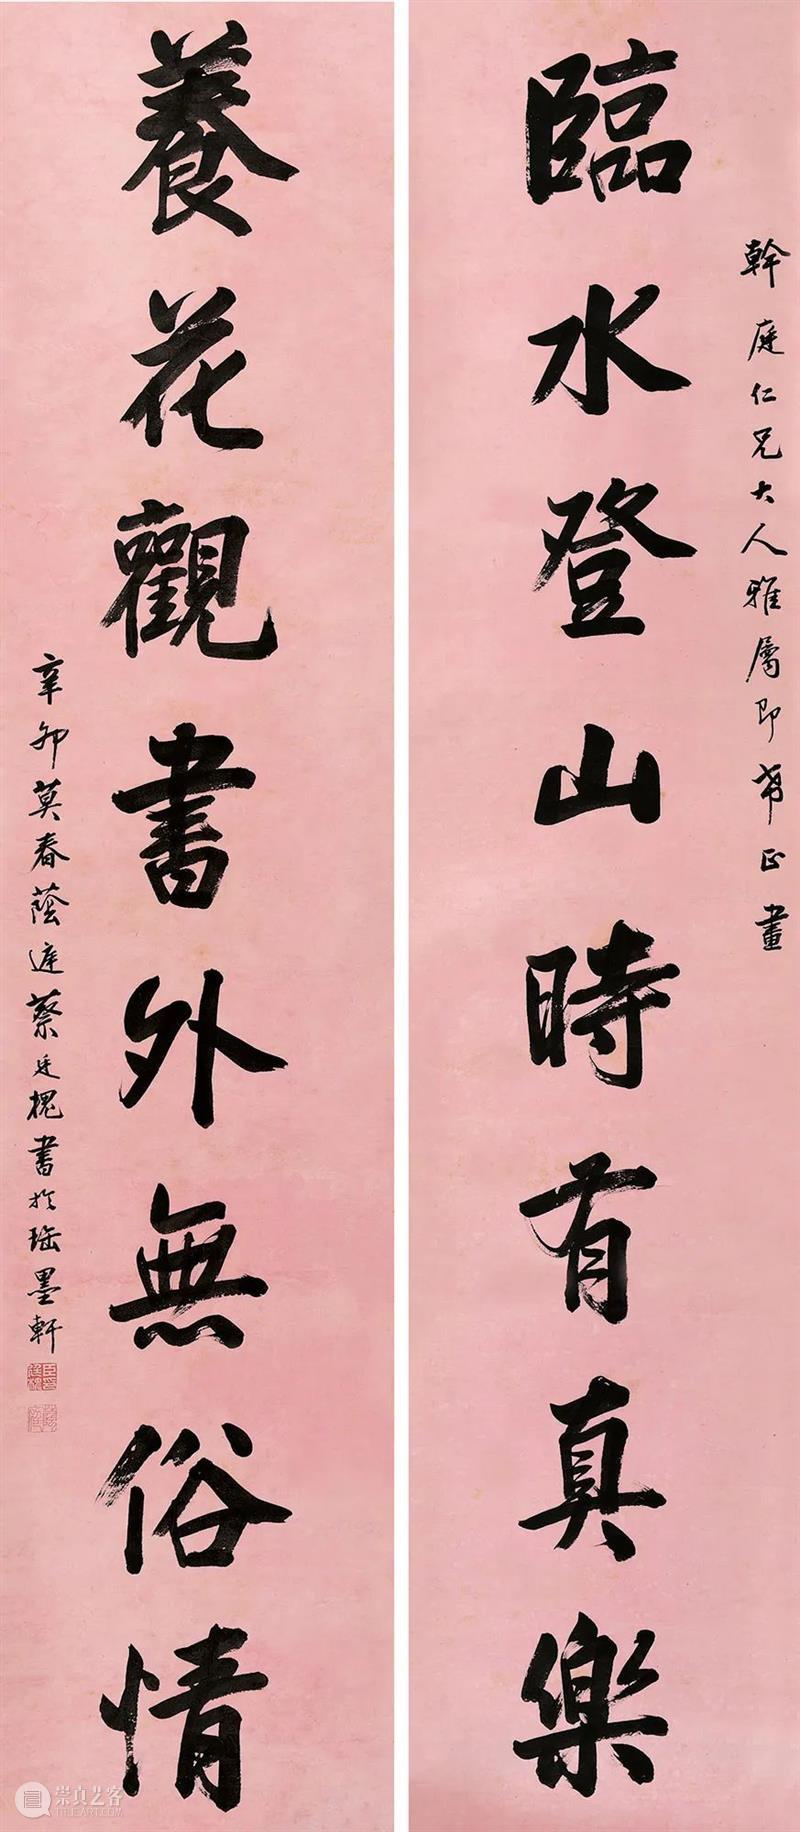 幹庭仁兄大人雅屬即希正書
臨水登山時有真樂
養花觀書外無俗情
辛卯莫春蔭遲蔡廷槐書於瑤墨軒
崇真艺客
TRUEART.COM